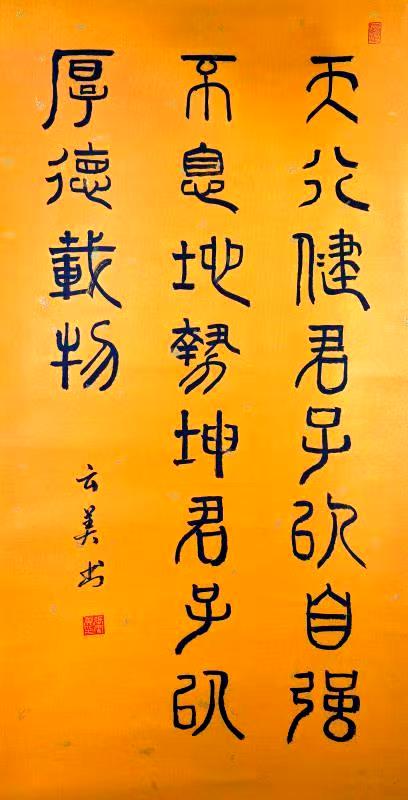 天行健君子以自强
不息地势坤君子以
厚德载物
云美书